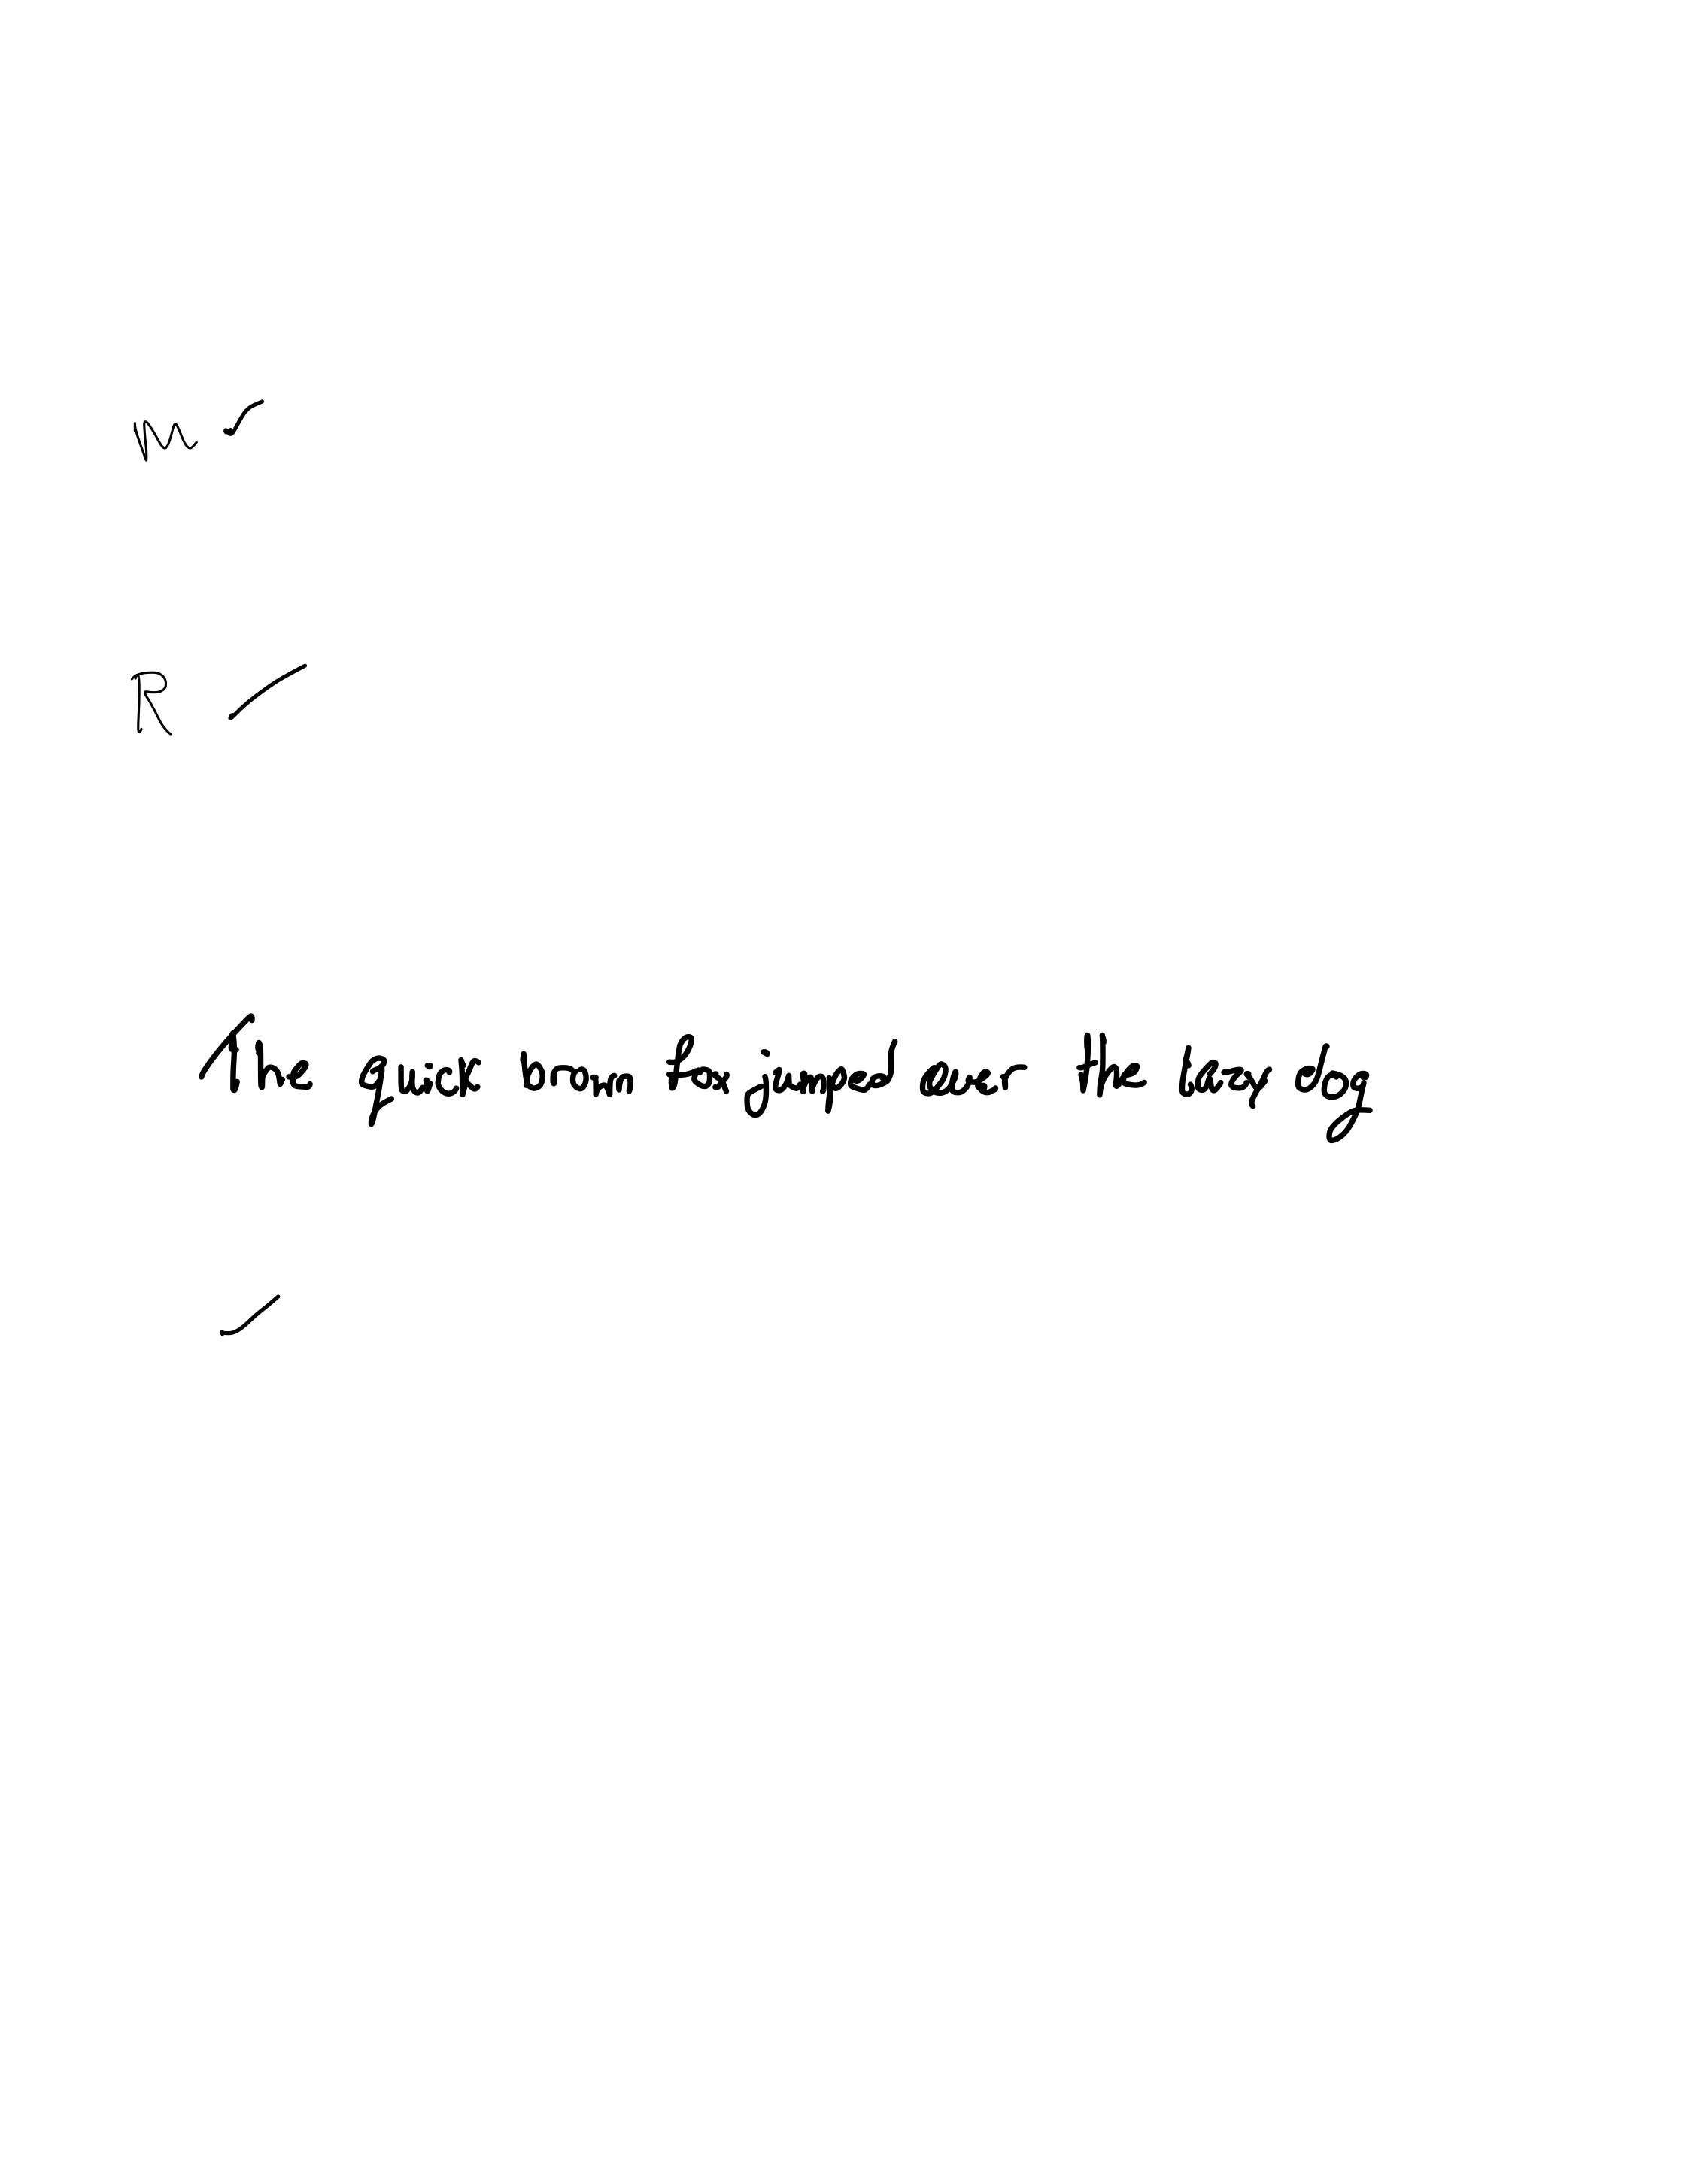 M ✓
R
The quick brown fox jumped over the lazy dog
✓